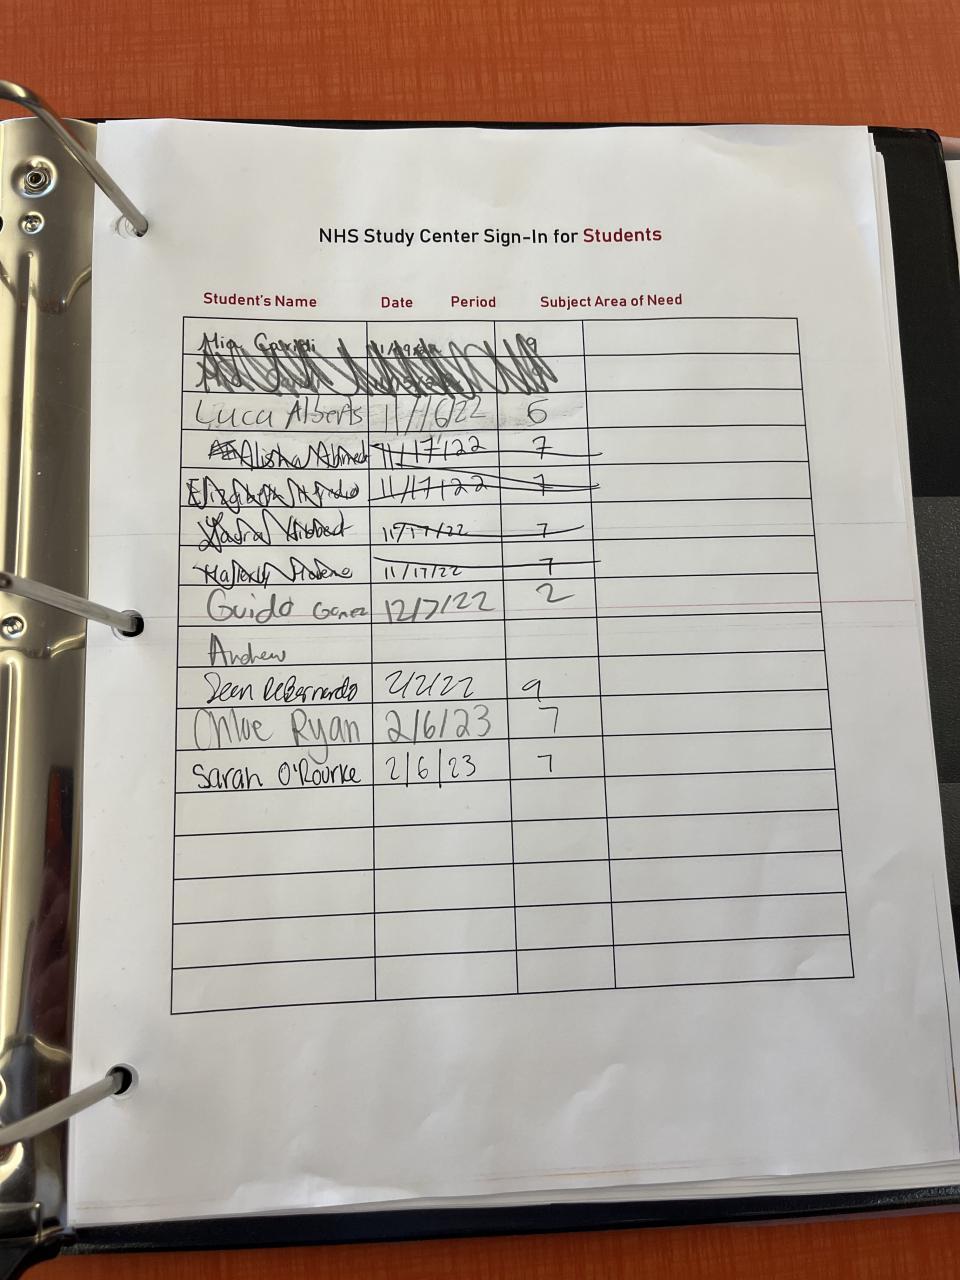 NHS Study Center Sign-In for Students
Student's Name Date Period Subject Area of Need
Mia 9
Luca Alberts 11/16/22 6
Alisha Ahmed 11/17/22 7
11/17/22 7
Laura Hibbert 11/17/22 7
11/17/22 7
Guido Gomez 12/7/22 2
Andrew
Sean DeBernardo 2/2/22 9
Chloe Ryan 2/6/23 7
Sarah O'Rourke 2/6/23 7